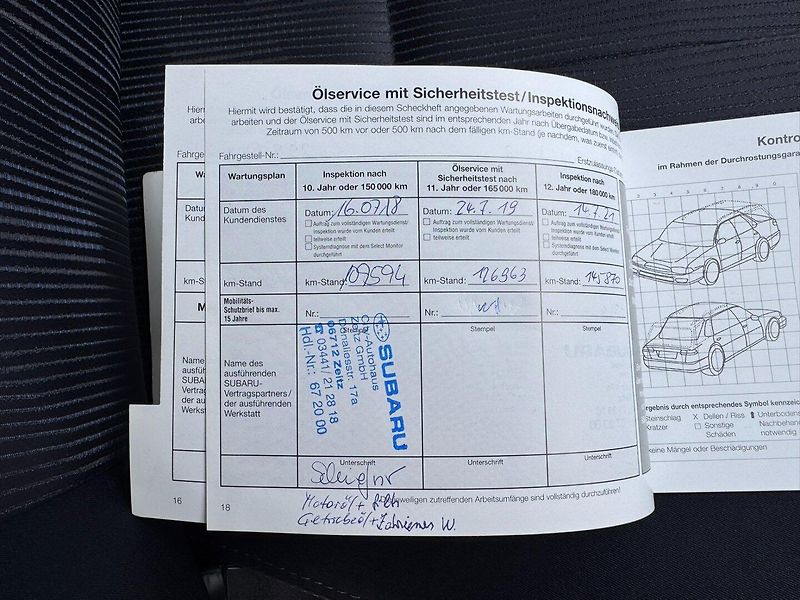 Ölservice mit Sicherheitstest/Inspektionsnachwei
Hiermit wird bestätigt, dass die in diesem Scheckheft angegebenen Wartungsarbeiten durchgeführt wurden.
arbeiten und der Ölservice mit Sicherheitstest sind im entsprechenden Jahr nach Übergabedatum bzw.
Zeitraum von 500 km vor oder 500 km nach dem fälligen km-Stand (je nachdem, was zuerst
Fahrgestell-Nr.:
Erstzulassungs-
Wartungsplan
Inspektion nach
10. Jahr oder 150 000 km
Ölservice mit
Sicherheitstest nach
11. Jahr oder 165 000 km
Inspektion nach
12. Jahr oder 180 000 km
Datum des
Kundendienstes
Datum: 16.07.18
Auftrag zum vollständigen Wartungsdienst/
Inspektion wurde vom Kunden erteilt
teilweise erteilt
Systemdiagnose mit dem Select Monitor
durchgeführt
Datum: 24.7.19
Auftrag zum vollständigen Wartungsdienst/
Inspektion wurde vom Kunden erteilt
teilweise erteilt
Datum: 14.7.21
Auftrag zum vollständigen Wartungsdienst/
Inspektion wurde vom Kunden erteilt
teilweise erteilt
Systemdiagnose mit dem Select Monitor
durchgeführt
km-Stand
km-Stand: 109594
km-Stand: 126363
km-Stand: 145870
Mobilitäts-
Schutzbrief bis max.
15 Jahre
Nr.:
Nr.:
Nr.:
Name des
ausführenden
SUBARU-
Vertragspartners/
der ausführenden
Werkstatt
Stempel
Stempel
Stempel
SUBARU
Autohaus
Zeitz GmbH
17a
06712 Zeitz
☎ 03441/ 21 28 18
Hdl-Nr.: 67 20 00
Unterschrift
Unterschrift
Unterschrift
jeweiligen zutreffenden Arbeitsumfänge sind vollständig durchzuführen!
Motoröl +
Getriebeöl + Zahnriemen W.
18
16
Hierm
arbe
Fahrgest
Wa
Datu
Kunden
km-Sta
M
Name
ausführ
SUBAR
Vertrag
der aus
Werkst
Kontro
im Rahmen der Durchrostungsgara
rgebnis durch entsprechendes Symbol kennzeic
Steinschlag
Kratzer
X Dellen / Riss
Sonstige
Schäden
Unterboden
Nachbehan
notwendig
keine Mängel oder Beschädigungen